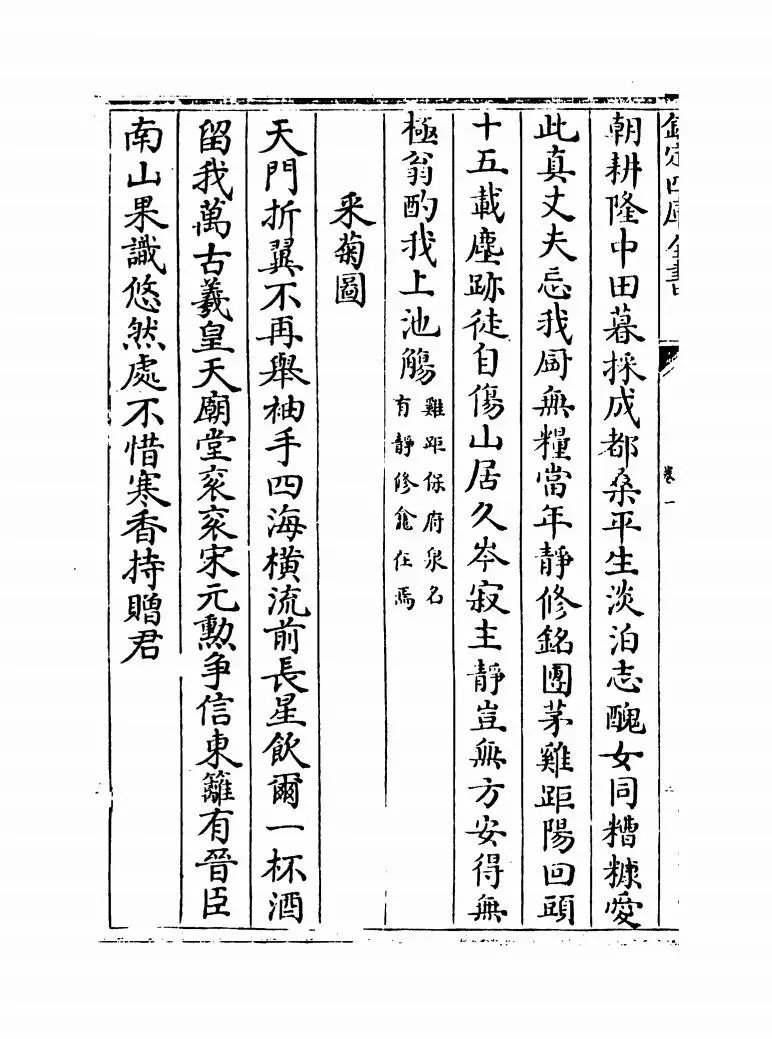 欽定四庫全書
卷一
朝耕隆中田暮採成都桑平生淡泊志醜女同糟糠愛
此真丈夫忘我厨無糧當年靜修銘團茅雞距陽回頭
十五載塵跡徒自傷山居久岑寂主靜豈無方安得無
極翁酌我上池觴雞距保府泉名
有靜修龕在焉
采菊圖
天門折翼不再舉袖手四海橫流前長星飲爾一杯酒
留我萬古羲皇天廟堂衮衮宋元勳争信東籬有晉臣
南山果識悠然處不惜寒香持贈君